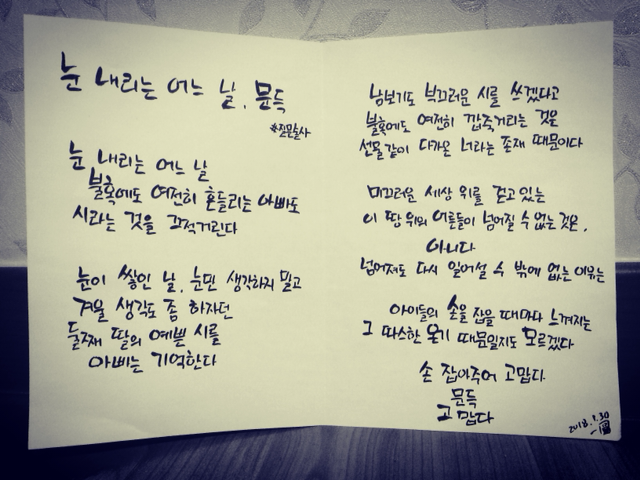 눈 내리는 어느 날, 문득
#질문술사
눈 내리는 어느 날
불혹에도 여전히 흔들리는 아빠도
시라는 것을 끄적거린다
눈이 쌓인 날, 눈만 생각하지 말고
겨울 생각도 좀 하자던
둘째 딸의 예쁜 시를
아빠는 기억한다
남보기도 부끄러운 시를 쓰겠다고
불혹에도 여전히 깝죽거리는 것은
선물같이 다가온 너라는 존재 때문이다
미끄러운 세상 위를 걷고 있는
이 땅 위의 어른들이 넘어질 수 없는 것은,
아니다
넘어져도 다시 일어설 수 밖에 없는 이유는
아이들의 손을 잡을 때마다 느껴지는
그 따스한 온기 때문일지도 모르겠다
손 잡아주어 고맙다
문득
고맙다
2018.1.30